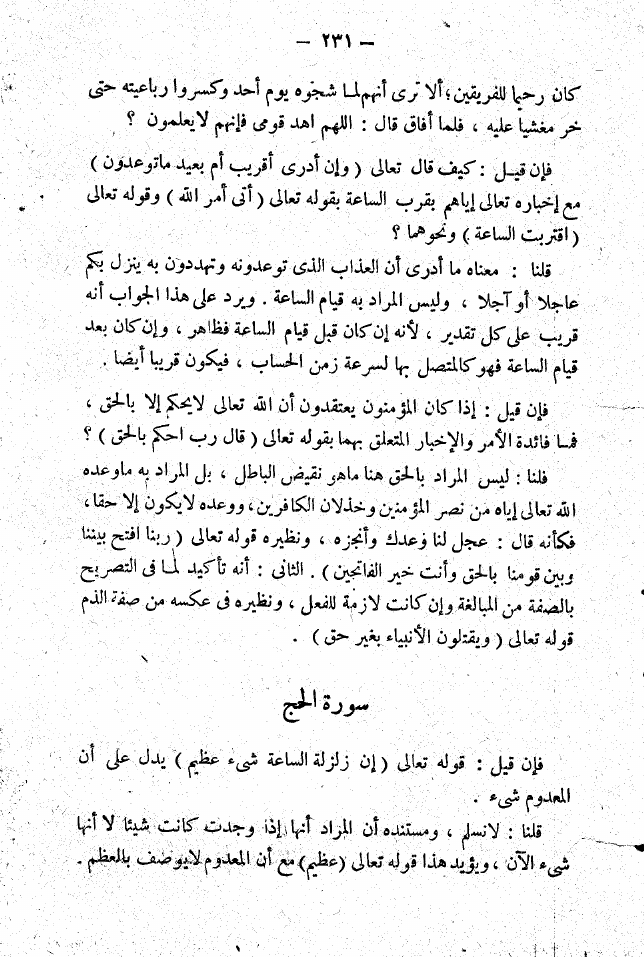 — ٢٣١ —
كان رحيما للفريقين؛ ألا ترى أنهم لما شجوه يوم أحد وكسروا رباعيته حتى
خر مغشيا عليه ، فلما أفاق قال : اللهم اهد قومى فإنهم لا يعلمون ؟
فإن قيل : كيف قال تعالى ( وإن أدرى أقريب أم بعيد ما توعدون )
مع إخباره تعالى إياهم بقرب الساعة بقوله تعالى ( أتى أمر الله ) وقوله تعالى
( اقتربت الساعة ) ونحوهما ؟
قلنا : معناه ما أدرى أن العذاب الذى توعدونه وتهددون به ينزل بكم
عاجلا أو آجلا ، وليس المراد به قيام الساعة . ويرد على هذا الجواب أنه
قريب على كل تقدير ، لأنه إن كان قبل قيام الساعة فظاهر ، وإن كان بعد
قيام الساعة فهو كالمتصل بها لسرعة زمن الحساب ، فيكون قريبا أيضا .
فإن قيل : إذا كان المؤمنون يعتقدون أن الله تعالى لا يحكم إلا بالحق ،
فما فائدة الأمر والإخبار المتعلق بهما بقوله تعالى ( قال رب احكم بالحق ) ؟
قلنا : ليس المراد بالحق هنا ما هو نقيض الباطل ، بل المراد به ما وعده
الله تعالى إياه من نصر المؤمنين وخذلان الكافرين، ووعده لا يكون إلا حقا،
فكأنه قال : عجل لنا وعدك وأنجزه ، ونظيره قوله تعالى ( ربنا افتح بيننا
وبين قومنا بالحق وأنت خير الفاتحين ) . الثانى : أنه تأكيد لما فى التصريح
بالصفة من المبالغة وإن كانت لازمة للفعل ، ونظيره فى عكسه من صفة الذم
قوله تعالى ( ويقتلون الأنبياء بغير حق ) .
سورة الحج
فإن قيل : قوله تعالى ( إن زلزلة الساعة شىء عظيم ) يدل على أن
المعدوم شىء .
قلنا : لا نسلم ، ومستنده أن المراد أنها إذا وجدت كانت شيئا لا أنها
شىء الآن ، ويؤيد هذا قوله تعالى (عظيم) مع أن المعدوم لا يوصف بالعظم .